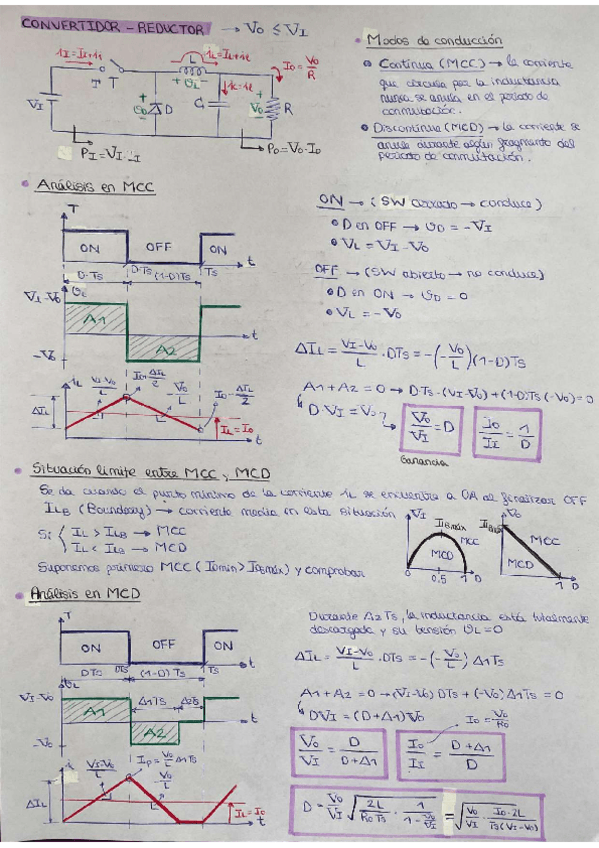 CONVERTIDOR - REDUCTOR → Vo ≤ VI
iI = IL+iL
iL = IL+iL
Io = Vo/R
+ VL -
T
D
C
R
VI
Vo
PI = VI·II
Po = Vo·Io
• Modos de conducción
Continua (MCC) → la corriente
que circula por la inductancia
nunca se anula en el período de
conmutación.
Discontinua (MCD) → la corriente se
anula durante algún fragmento del
período de conmutación.
• Análisis en MCC
T
ON OFF ON
D·Ts DTs (1-D)Ts Ts t
VI-Vo VL
A1
A2
-Vo
t
iL
(VI-Vo)/L
Io+ΔIL/2
-Vo/L
Io-ΔIL/2
ΔIL
IL = Io
t
ON → (SW cerrado → conduce)
D en OFF → VD = -VI
VL = VI-Vo
OFF → (SW abierto → no conduce)
D en ON → VD = 0
VL = -Vo
ΔIL = (VI-Vo)/L · DTs = -(-Vo/L)(1-D)Ts
A1+A2 = 0 → D·Ts·(VI-Vo)+(1-D)Ts(-Vo)=0
D·VI = Vo
Vo/VI = D
Io/II = 1/D
Ganancia
• Situación límite entre MCC y MCD
Se da cuando el punto mínimo de la corriente iL se encuentra a 0A al finalizar OFF
ILB (Boundary) → corriente media en esta situación
Si { IL > ILB → MCC
IL < ILB → MCD
Suponemos primero MCC (Iomin > IBmáx) y comprobar
VI
IBmáx
MCC
MCD
0 0.5 1 D
Vo
MCC
MCD
0 1 D
• Análisis en MCD
T
ON OFF ON
DTs DTs (1-D)Ts Ts t
VI-Vo VL
Δ1Ts Δ2Ts
A1
A2
-Vo
(VI-Vo)/L
Ip = Vo/L Δ1Ts
-Vo/L
ΔIL
IL = Io
t
Durante Δ2Ts, la inductancia está totalmente
descargada y su tensión VL=0
ΔIL = (VI-Vo)/L · DTs = -(-Vo/L) Δ1Ts
A1+A2 = 0 → (VI-Vo) DTs + (-Vo) Δ1Ts = 0
DVI = (D+Δ1)Vo
Io = Vo/Ro
Vo/VI = D/(D+Δ1)
Io/II = (D+Δ1)/D
D = Vo/VI √(2L/(RoTs) · 1/(1-Vo/VI)) = √(Vo/VI · Io·2L/(Ts(VI-Vo)))